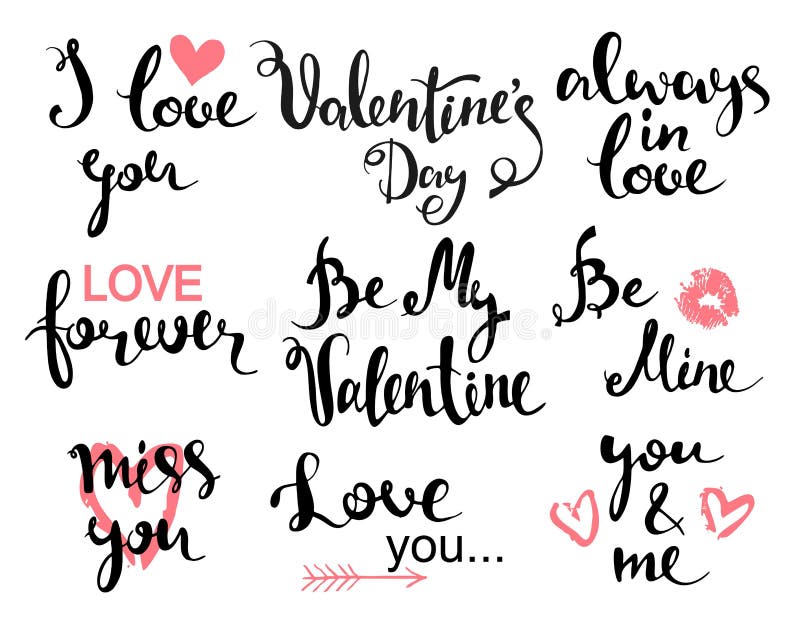 I love
you
Valentine's
Day
always
in
love
LOVE
forever
Be My
Valentine
Be
Mine
miss
you
Love
you...
you
&
me
dreamstime